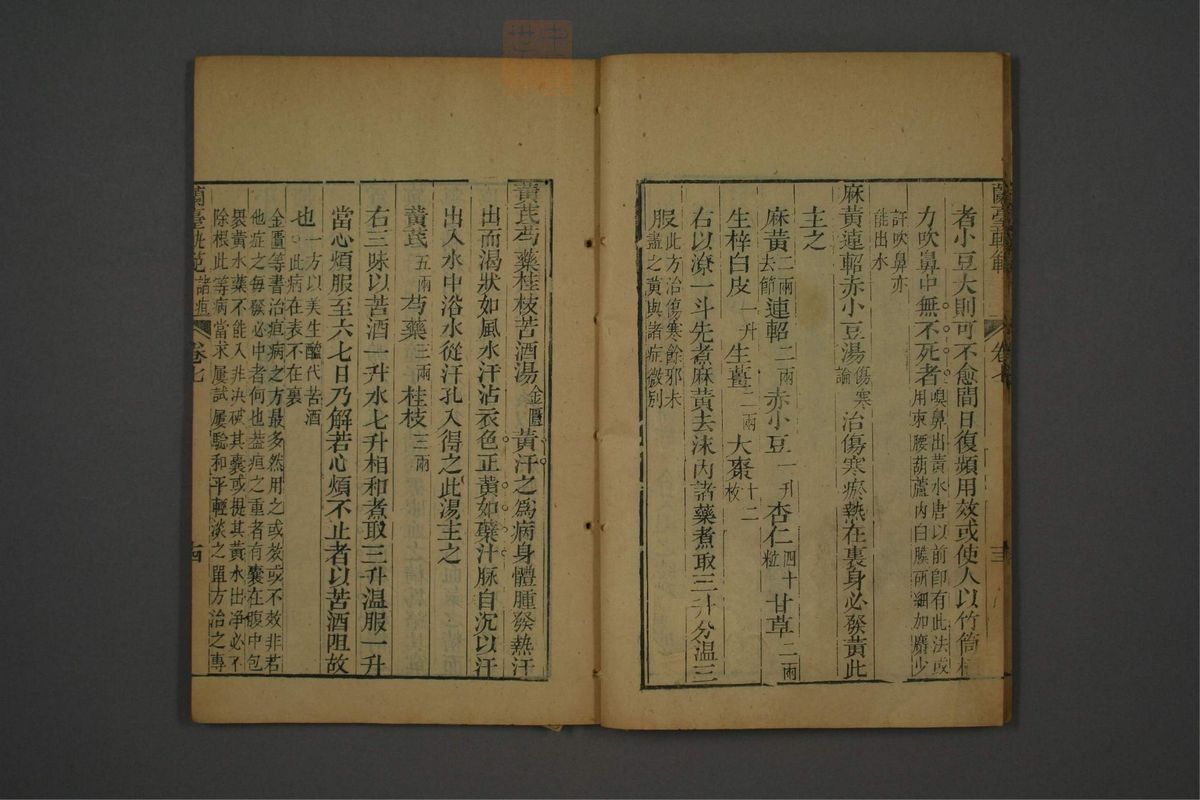 者小豆大則可不愈間日復頻用效或使人以竹筒極
力吹鼻中無不死者嗅鼻出黃水唐以前卽有此法或用束腰葫蘆內白膜研細加麝少
許吹鼻亦能出水
麻黃連軺赤小豆湯傷寒論治傷寒瘀熱在裏身必發黃此
主之
麻黃二兩去節連軺二兩赤小豆一升杏仁四十粒甘草二兩
生梓白皮一升生薑二兩大棗十二枚
右以潦一斗先煮麻黃去沫內諸藥煮取三升分温三
服此方治傷寒餘邪未盡之黃與諸症微别
卷七
黃芪芍藥桂枝苦酒湯金匱黃汗之爲病身體腫發熱汗
出而渴狀如風水汗沾衣色正黃如蘗汁脉自沉以汗
出入水中浴水從汗孔入得之此湯主之
黃芪五兩芍藥三兩桂枝三兩
右三味以苦酒一升水七升相和煮取三升温服一升
當心煩服至六七日乃解若心煩不止者以苦酒阻故
也一方以美生醯代苦酒。此病在表不在裏
金匱等書治疸病之方最多然用之或效或不效非若
他症之每發必中者何也葢疸之重者有囊在腹中包
褁黃水藥不能入非决破其囊或提其黃水出净必不
除根此等病當求屢試屢驗和平輕淡之單方治之專
蘭臺軌範 諸疸 卷七 十四